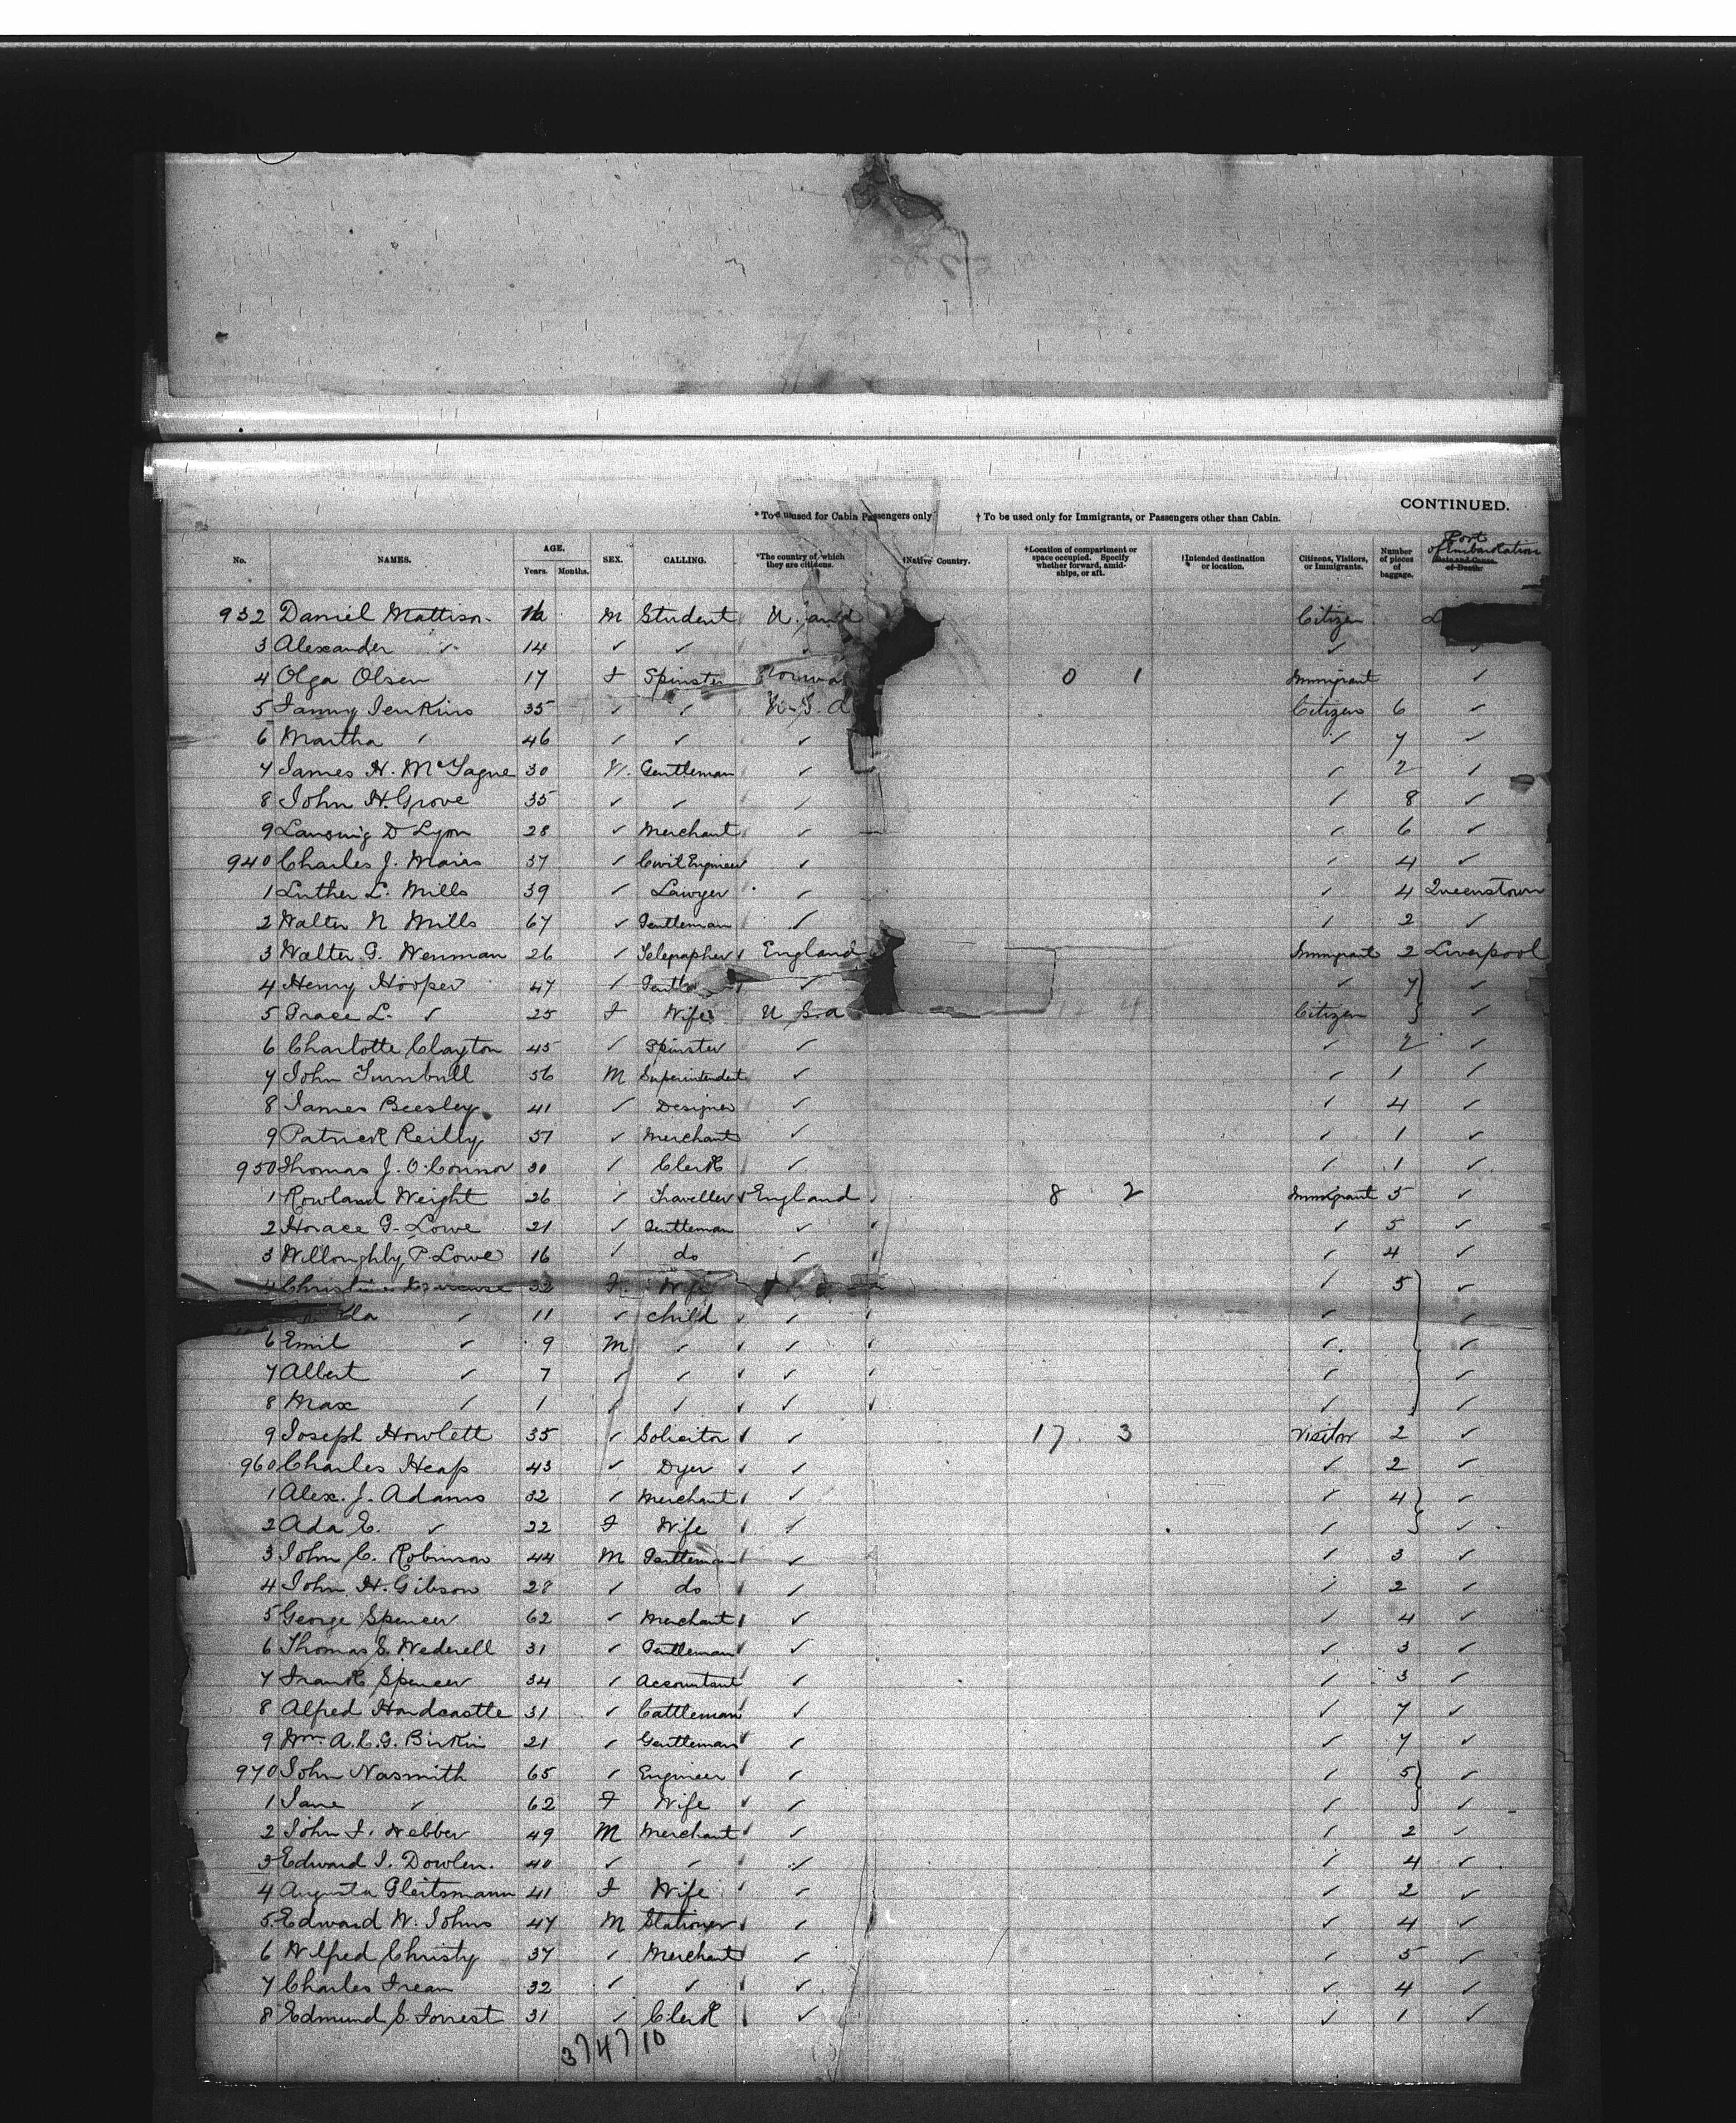 CONTINUED.
*To be used for Cabin Passengers only † To be used only for Immigrants, or Passengers other than Cabin.
No. NAMES. AGE. Years. Months. SEX. CALLING. *The country of which they are citizens. †Native Country. †Location of compartment or space occupied. Specify whether forward, amidships, or aft. †Intended destination or location. Citizens, Visitors, or Immigrants. Number of pieces of baggage. Port of Embarkation
932 Daniel Mattison 16 M Student Citizen
3 Alexander " 14 " " " "
4 Olga Olsen 17 F Spinster Norway 0 1 Immigrant "
5 Fanny Jenkins 35 " " U.S.A Citizens 6 "
6 Martha " 46 " " " " 7 "
7 James H. McTague 30 M Gentleman " " 2 "
8 John H. Grove 35 " " " " 8 "
9 Lansing D Lyon 28 " Merchant " " 6 "
940 Charles J. Mairs 37 " Civil Engineer " " 4 "
1 Luther L. Mills 39 " Lawyer " " 4 Queenstown
2 Walter N Mills 67 " Gentleman " " 2 "
3 Walter G. Wenman 26 " Telegrapher England Immigrant 2 Liverpool
4 Henry Hooper 47 " " " 7 "
5 Grace L. " 25 F Wife U S.a Citizen "
6 Charlotte Clayton 45 " Spinster " " 2 "
7 John Turnbull 56 M Superintendent " " 1 "
8 James Beesley 41 " Designer " " 4 "
9 Patrick Reilly 37 " Merchant " " 1 "
950 Thomas J. O'Connor 30 " Clerk " " 1 "
1 Rowland Weight 26 " Traveller England 8 2 Immigrant 5 "
2 Horace G. Lowe 21 " Gentleman " " 5 "
3 Willoughby P. Lowe 16 " do " " 4 "
4 32 F Wife " 5 "
11 " child " " "
6 Emil " 9 M " " " "
7 Albert " 7 " " " " "
8 Max " 1 " " " " "
9 Joseph Howlett 35 " Solicitor " 17 3 Visitor 2 "
960 Charles Heap 43 " Dyer " " 2 "
1 Alex. J. Adams 32 " Merchant " " 4 "
2 Ada E. " 22 F Wife " " "
3 John C. Robinson 44 M Gentleman " " 3 "
4 John H. Gibson 28 " do " " 2 "
5 George Spencer 62 " Merchant " " 4 "
6 Thomas S. Wederell 31 " Gentleman " " 3 "
7 Frank Spencer 34 " Accountant " " 3 "
8 Alfred Hardcastle 31 " Cattleman " " 7 "
9 Wm. A. C. G. Birkin 21 " Gentleman " " 7 "
970 John Nasmith 65 " Engineer " " 5 "
1 Jane " 62 F Wife " " "
2 John F. Webber 49 M Merchant " " 2 "
3 Edward I. Dowlen. 40 " " " " 4 "
4 Augusta Gleitsmann 41 F Wife " " 2 "
5 Edward W. Johns 47 M Stationer " " 4 "
6 Wilfred Christy 37 " Merchant " " 5 "
7 Charles Frean 32 " " " " 4 "
8 Edmund S. Forrest 31 " Clerk " " 1 "
37 47 10